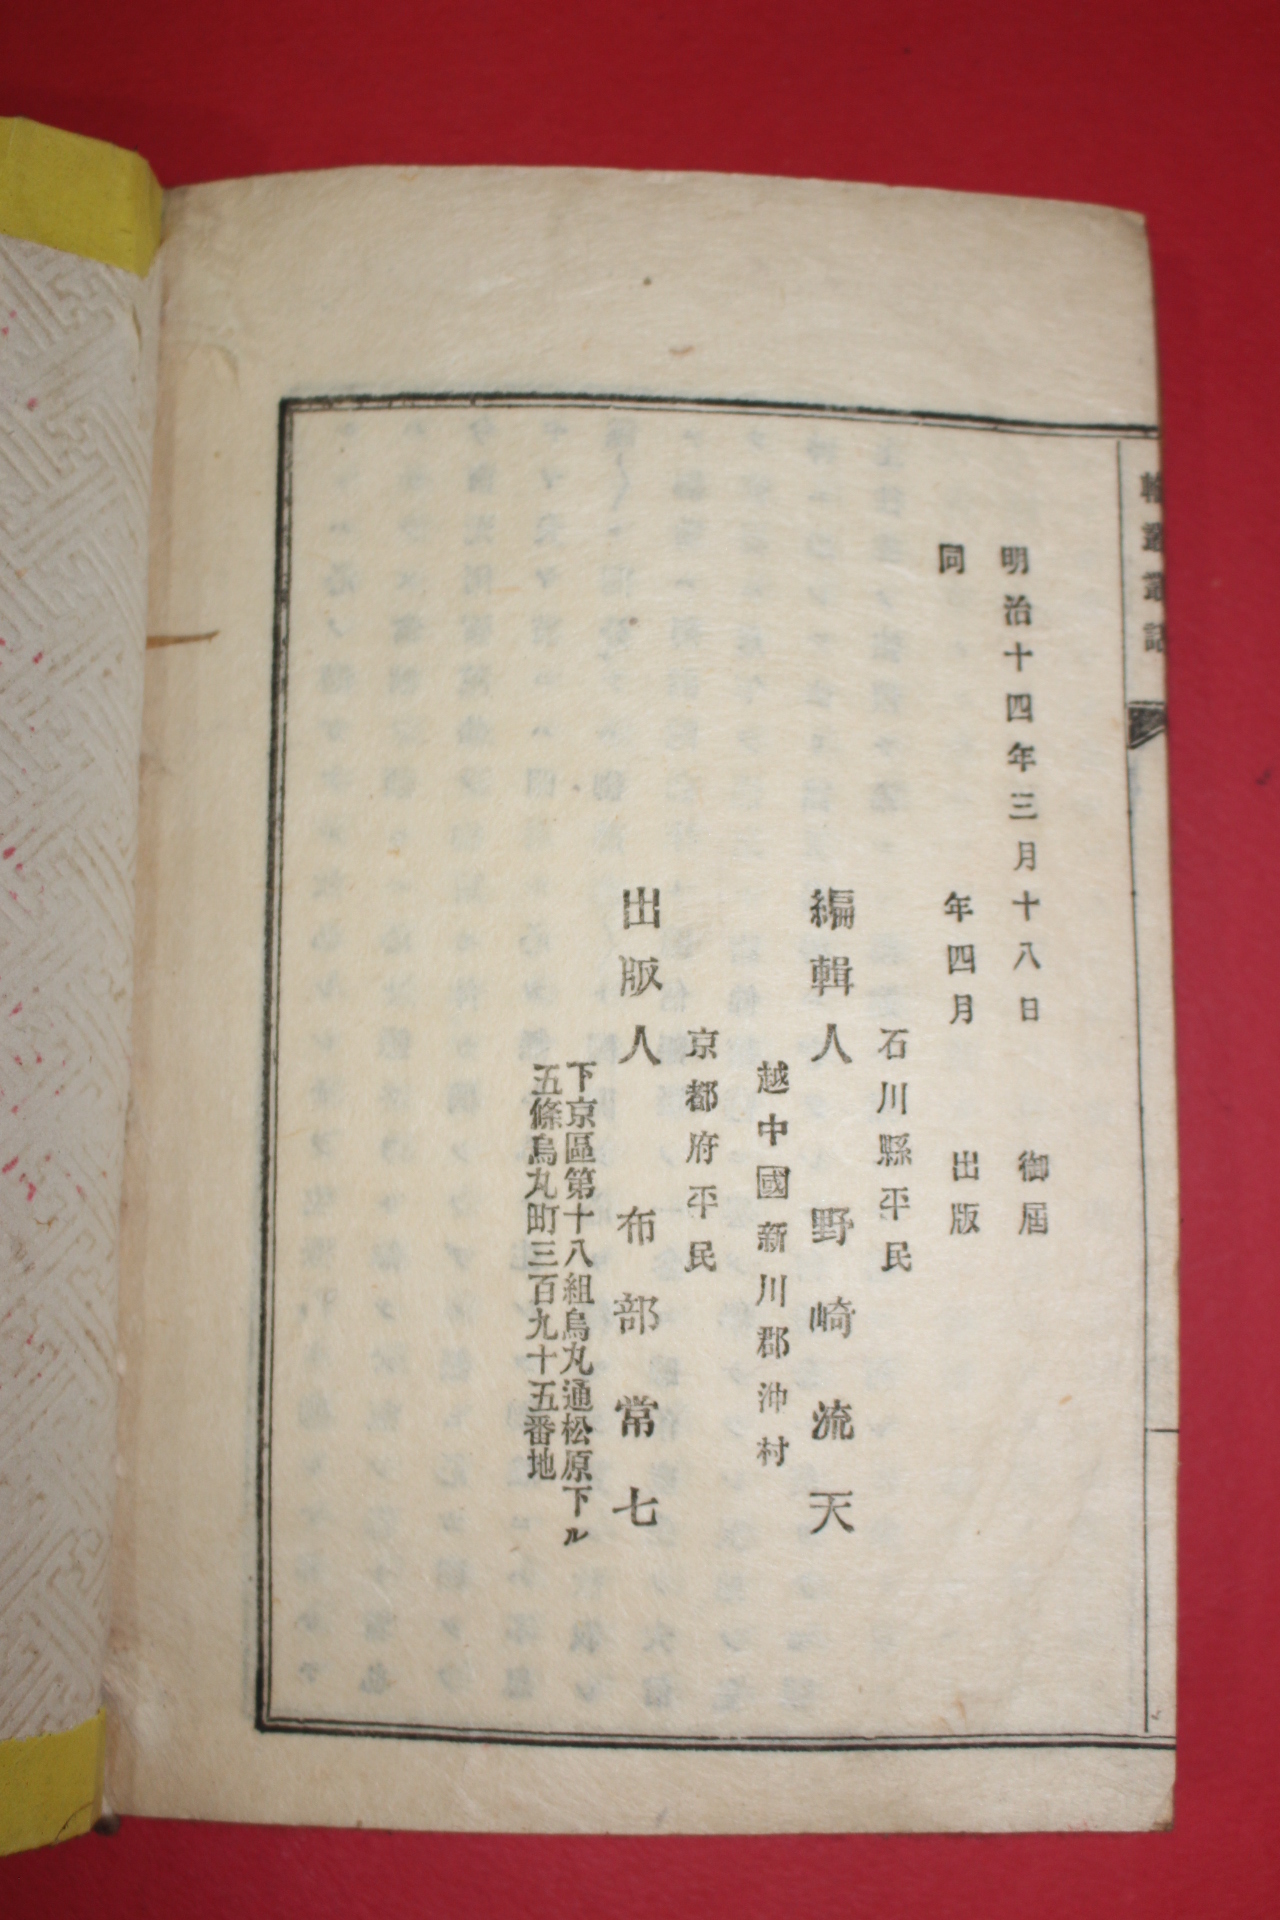 明治十四年三月十八日 御屆
同 年四月 出版
石川縣平民
編輯人 野崎流天
越中國新川郡沖村
京都府平民
出版人 布部常七
下京區第十八組烏丸通松原下ル
五條烏丸町三百九十五番地